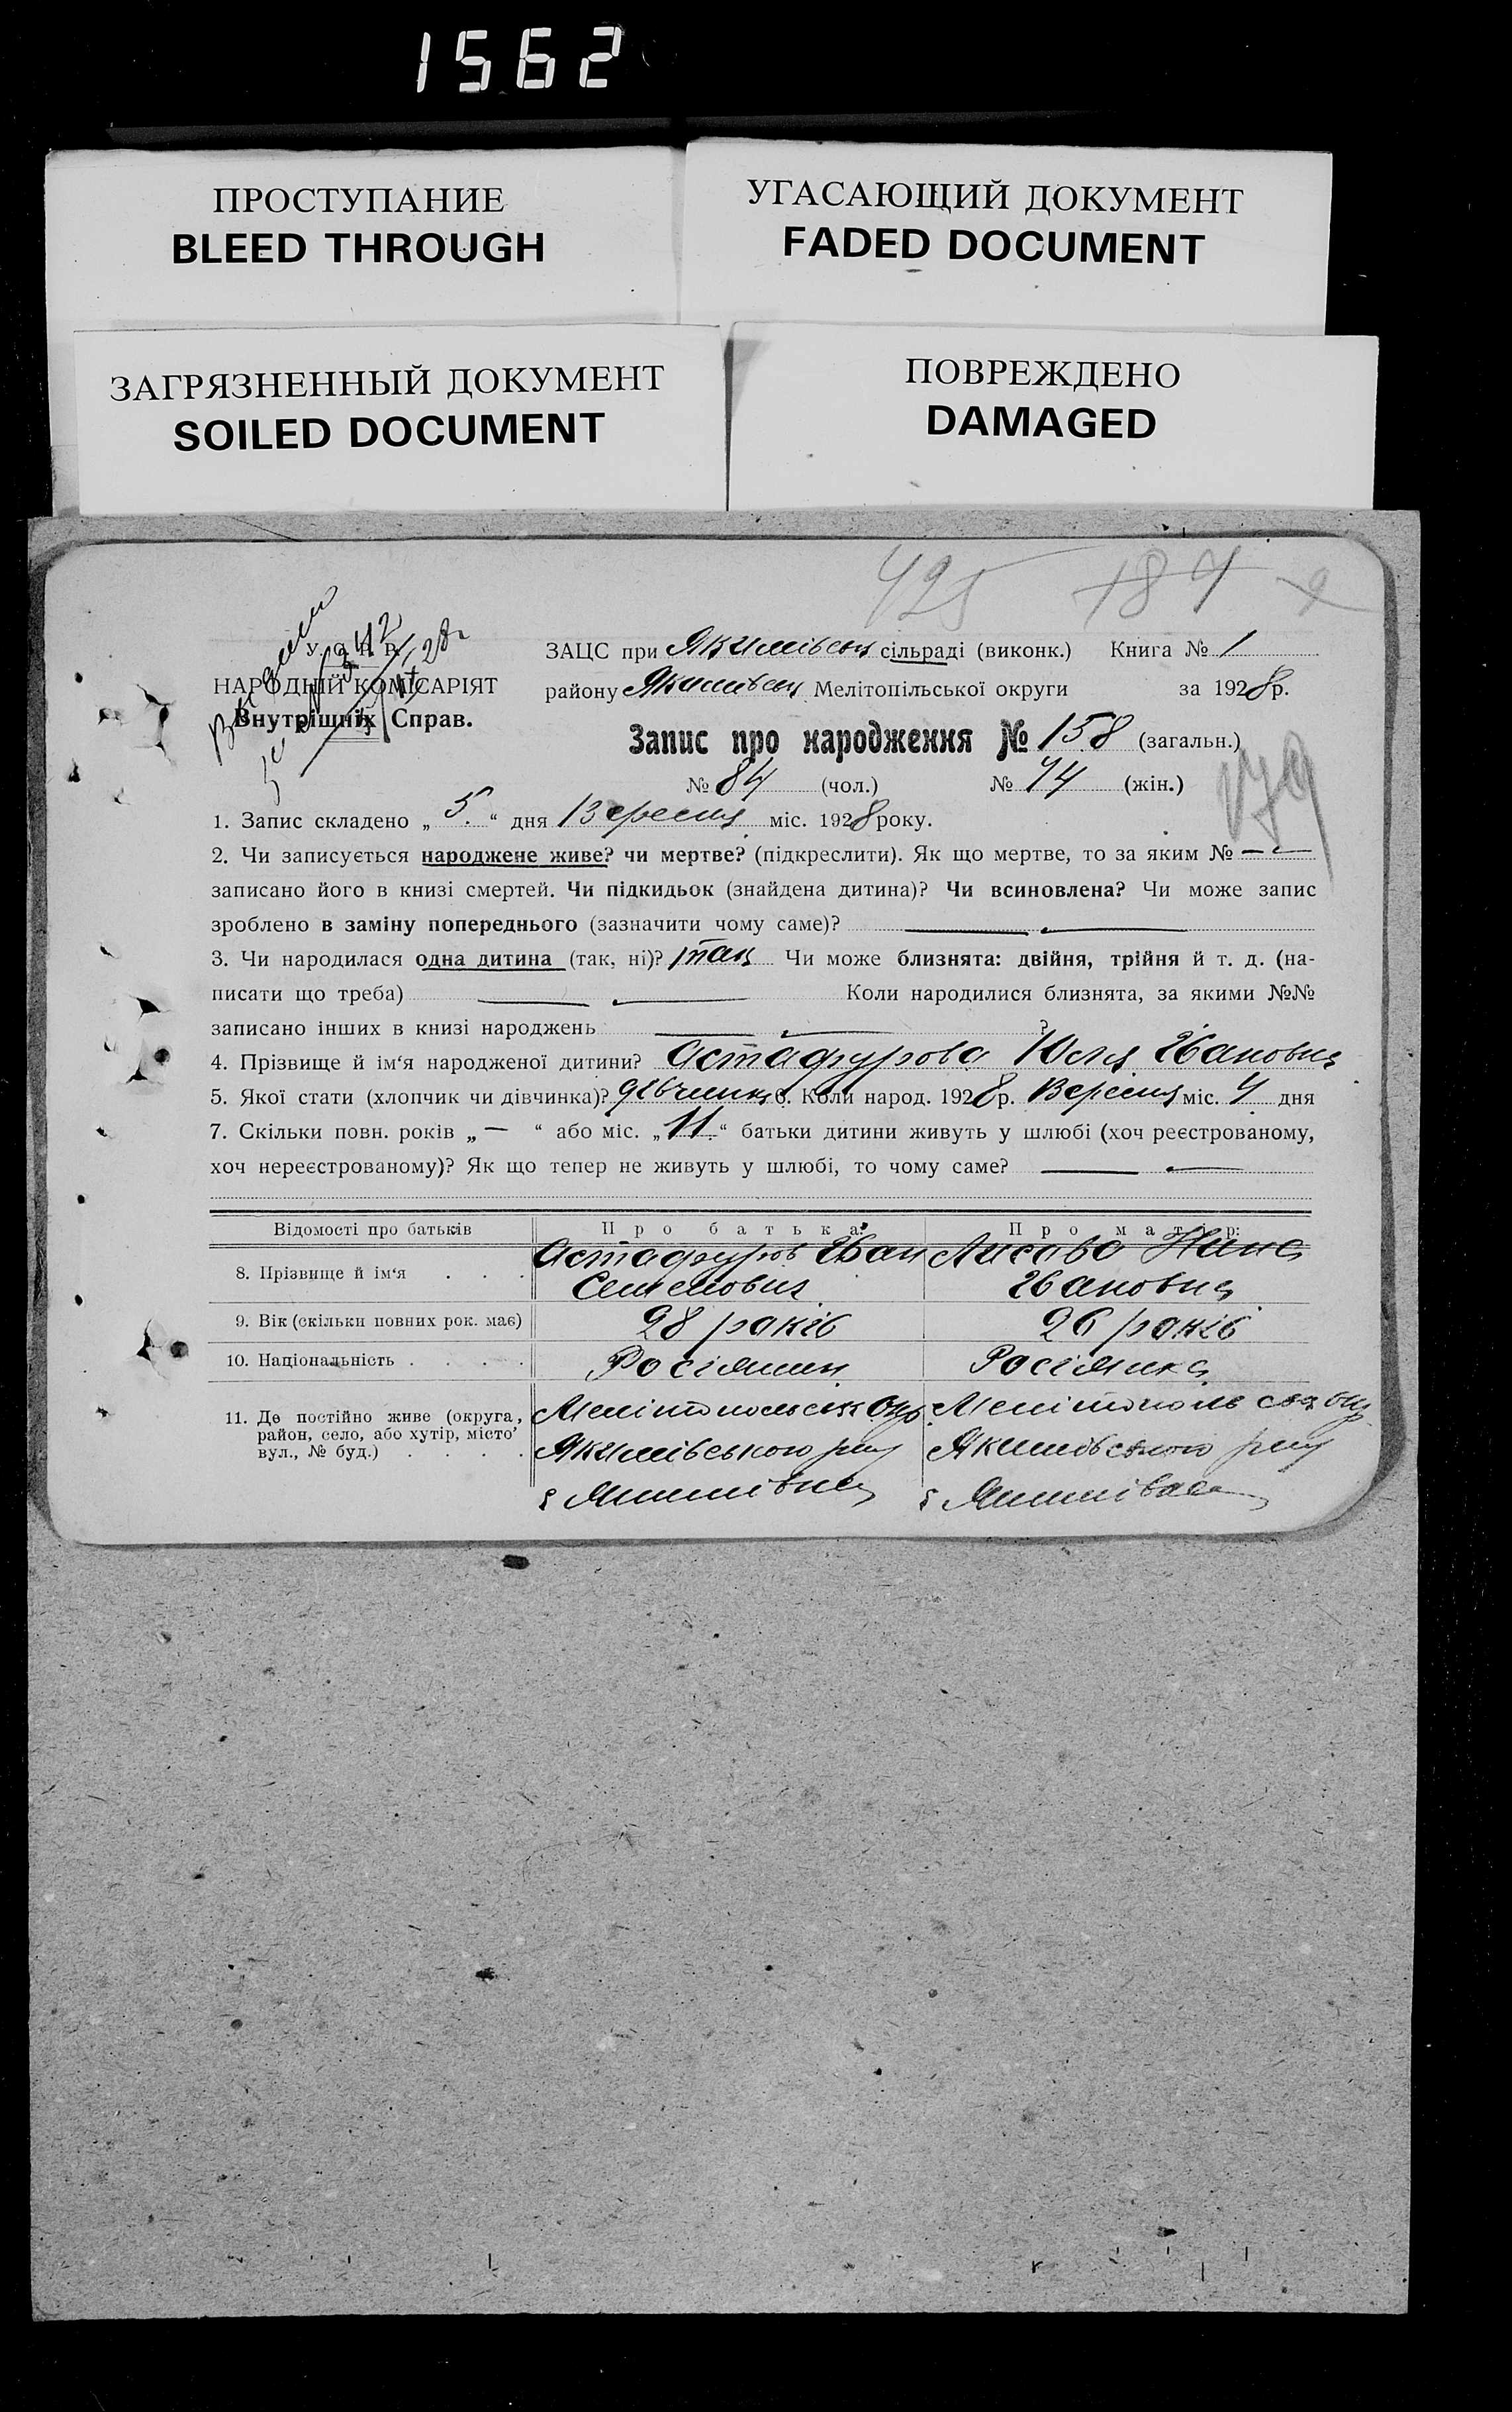 1562
ПРОСТУПАНИЕ
BLEED THROUGH
УГАСАЮЩИЙ ДОКУМЕНТ
FADED DOCUMENT
ЗАГРЯЗНЕННЫЙ ДОКУМЕНТ
SOILED DOCUMENT
ПОВРЕЖДЕНО
DAMAGED
У. С. Р. Р.
НАРОДНІЙ КОМІСАРІЯТ
Внутрішніх Справ.
425 187
ЗАЦС при Якимівськ сільраді (виконк.) Книга № 1
району Якимівськ Мелітопільської округи за 1928 р.
Запис про народження № 158 (загальн.)
№ 84 (чол.) № 74 (жін.)
179
1. Запис складено „ 5. “ дня Вересня міс. 1928 року.
2. Чи записується народжене живе? чи мертве? (підкреслити). Як що мертве, то за яким № —
записано його в книзі смертей. Чи підкидьок (знайдена дитина)? Чи всиновлена? Чи може запис
зроблено в заміну попереднього (зазначити чому саме)? —
3. Чи народилася одна дитина (так, ні)? так Чи може близнята: двійня, трійня й т. д. (на-
писати що треба) — Коли народилися близнята, за якими №№
записано інших в книзі народжень — ?
4. Прізвище й ім‘я народженої дитини? Астафурова Юля Івановна
5. Якої стати (хлопчик чи дівчинка)? дівчинка 6. Коли народ. 1928 р. Вересня міс. 4 дня
7. Скільки повн. років „ — “ або міс. „ 11. “ батьки дитини живуть у шлюбі (хоч реєстрованому,
хоч нереєстрованому)? Як що тепер не живуть у шлюбі, то чому саме? —
Відомості про батьків Про батька: Про матір:
8. Прізвище й ім‘я . . . Астафуров Іван Лисова Нина
Семенович Івановна
9. Вік (скільки повних рок. має) 28 років 26 років
10. Національність . . . . Росіянин Росіянка
11. Де постійно живе (округа, район, село, або хутір, місто’ вул., № буд.) . . . .
Мелітопольськ Окр. Мелітопольськ окр
Якимівського рну Якимівського рну
с Якимівка с Якимівка